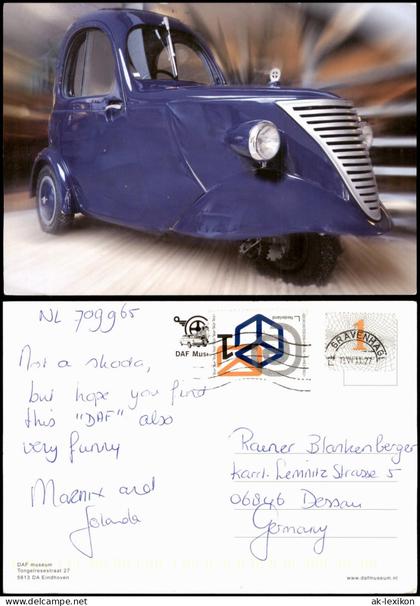 NL 709965
Not a skoda,
but hope you find
this "DAF" also
very funny
Marnix and
Jolanda
DAF museum
Tongelresestraat 27
5613 DA Eindhoven
DAF Mus
Nederland
1
1
GRAVENHAG
Rainer Blankenberger
Karl-Liebknitz Strasse 5
06846 Dessau
Germany
www.dafmuseum.nl
© ak-ansichtskarten.de
ak-lexikon.com